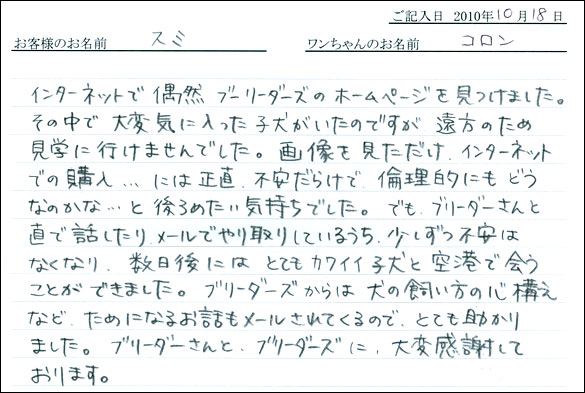 ご記入日 2010年10月18日
お客様のお名前 スミ ワンちゃんのお名前 コロン
インターネットで偶然 ブーリーダーズのホームページを見つけました。
その中で 大変気に入った子犬がいたのですが 遠方のため
見学に行けませんでした。画像を見ただけ、インターネット
での購入…には正直、不安だらけで、倫理的にもどう
なのかな…と後ろめたい気持ちでした。でも、ブリーダーさんと
直で話したり、メールでやり取りしているうち、少しずつ不安は
なくなり、数日後には とてもカワイイ子犬と空港で会う
ことができました。ブリーダーズからは 犬の飼い方の心構え
など、ためになるお話もメールされてくるので、とても助かり
ました。ブリーダーさんと、ブリーダーズに、大変感謝して
おります。